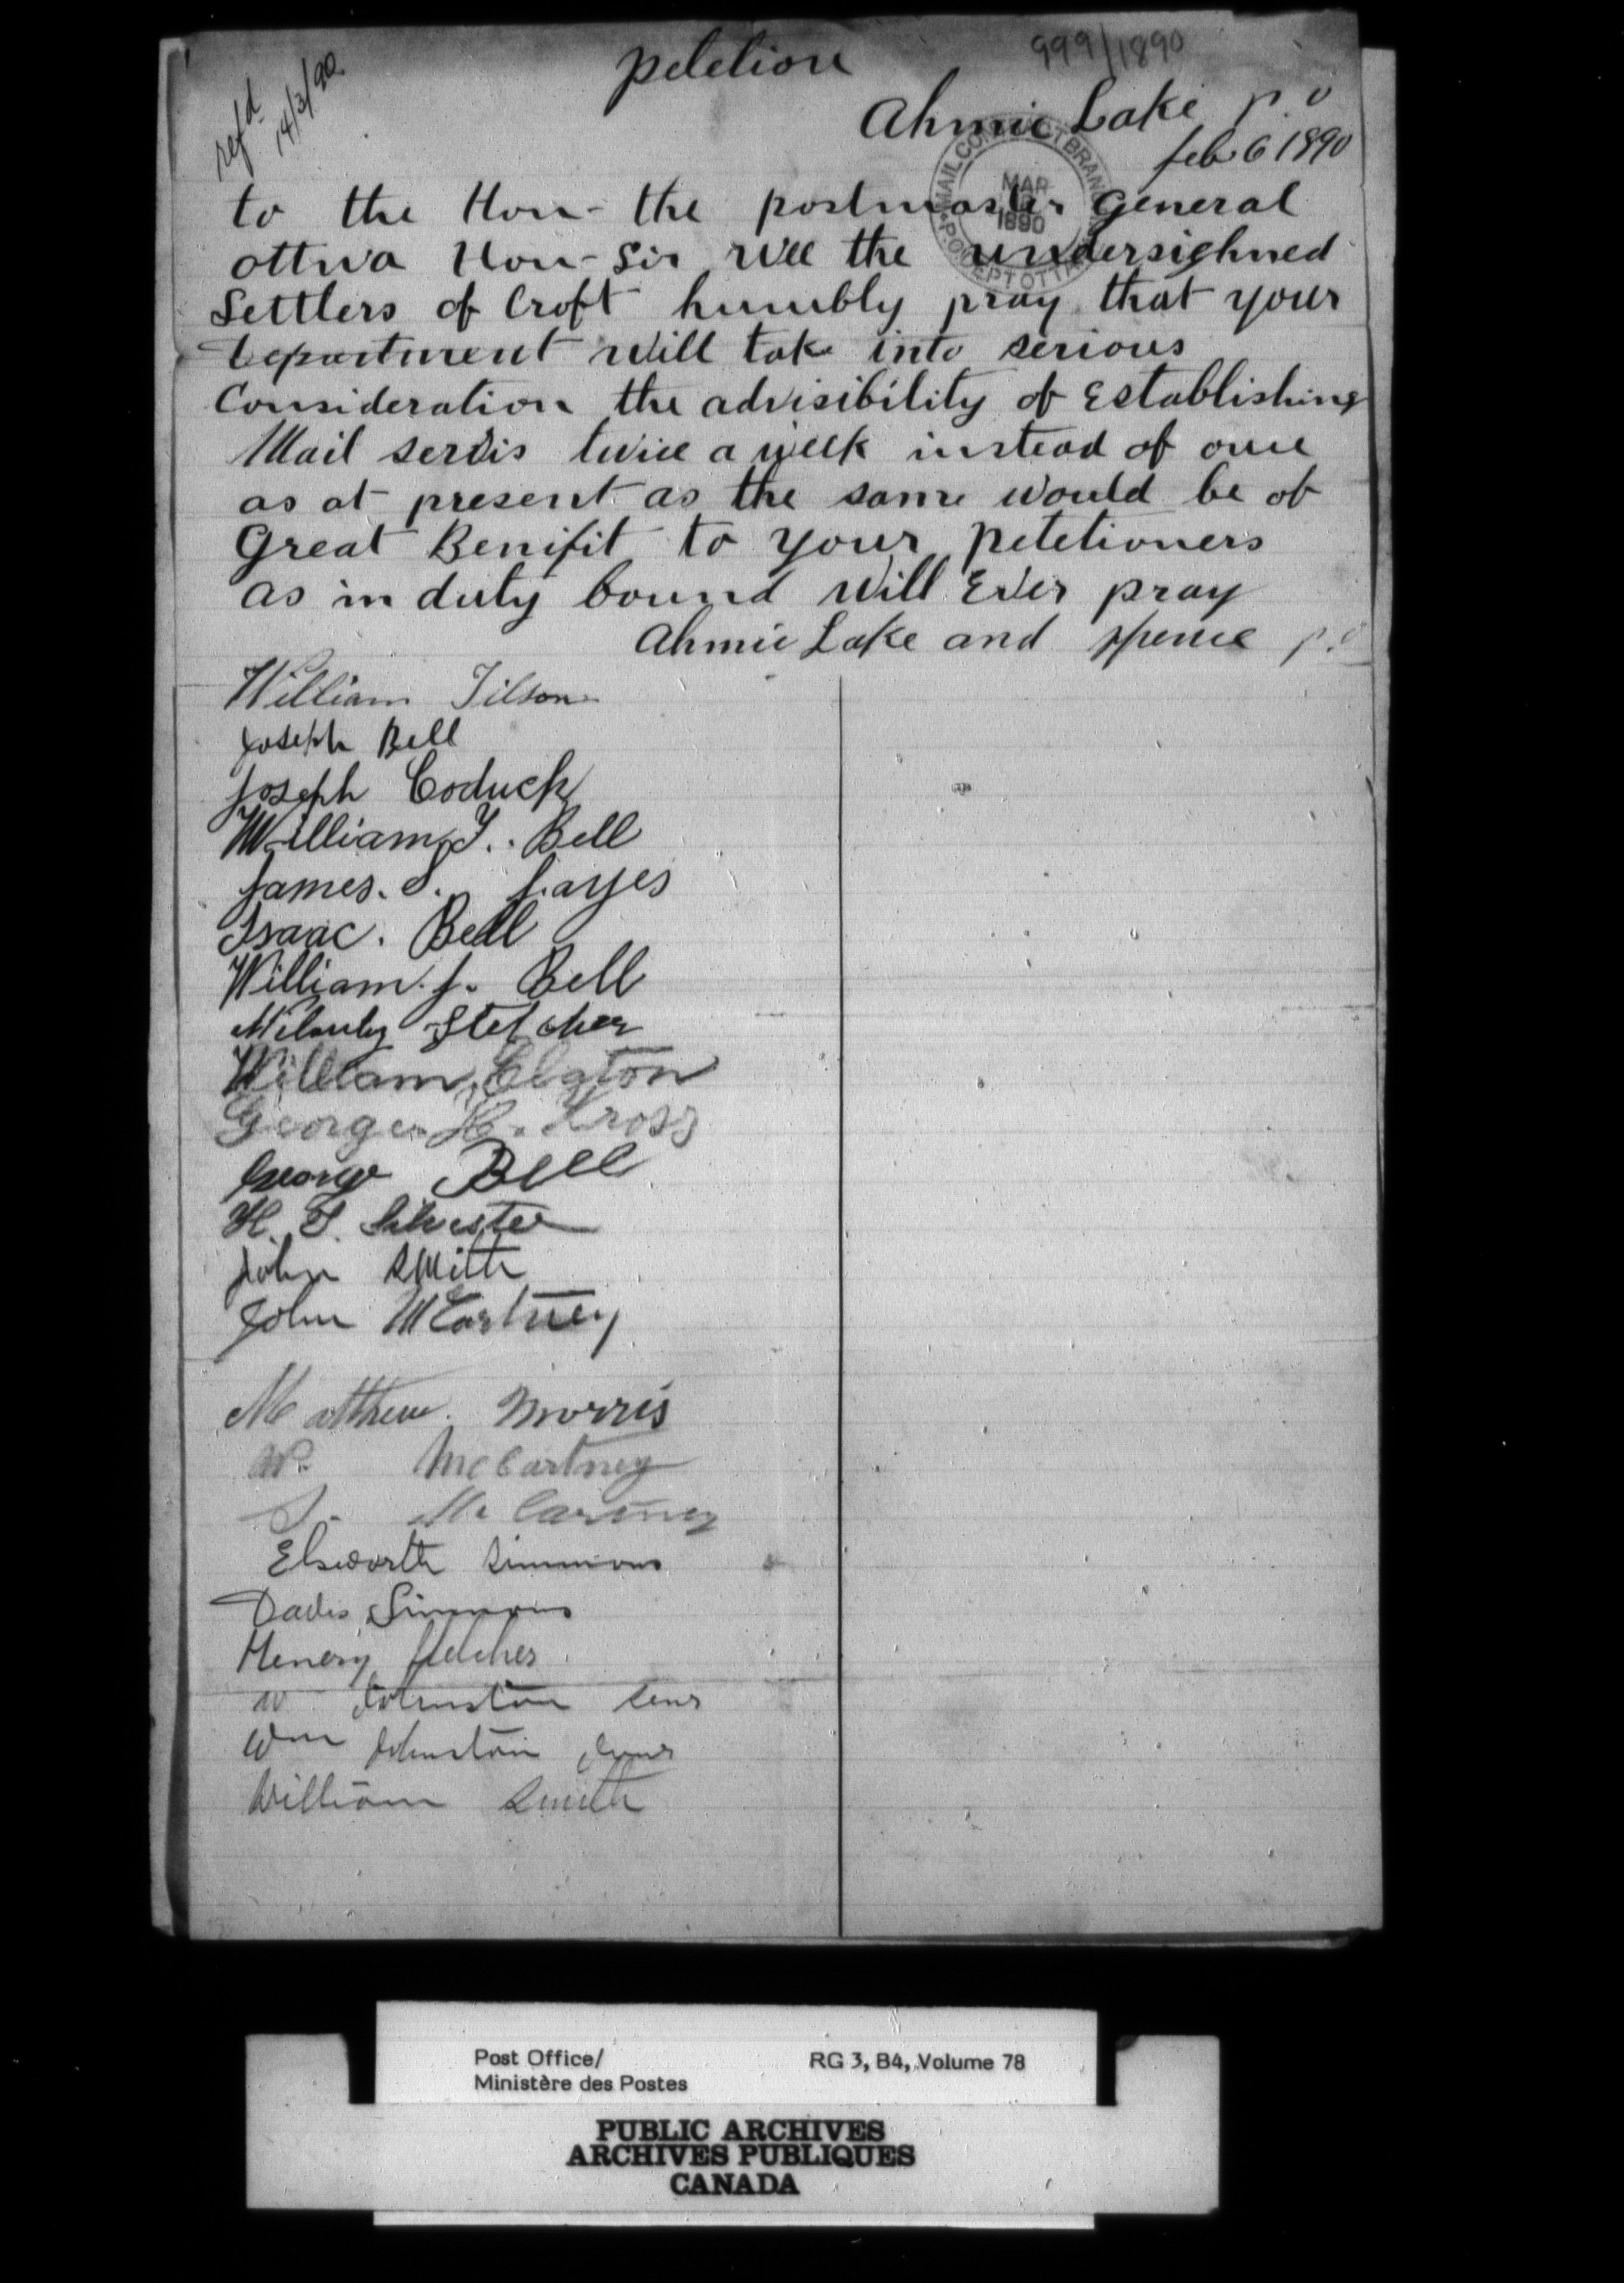 petetion
999/1890
refd 14/3/90
Ahmic Lake p.o
feb 6 1890
MAIL CONTRACT BRANCH
MAR
1890
P.O. DEPT OTTAWA
to the Hon- the postmaster General
ottwa Hon-Sir Wee the undersighned
Settlers of Croft humbly pray that your
Department Will take into serious
Consideration the advisibility of Establishing
Mail servis twice a week instead of once
as at present as the same would be of
Great Benifit to your petetioners
as in duty bound Will Ever pray
Ahmic Lake and Spence p.o
William Tilson
Joseph Bell
Joseph Coduck
William J. Bell
James. S.
Isaac. Bell
William. J. Bell
William
George. H. Kross
George Bell
H. T. Silvester
John Smith
John McCartney
Matthew. Morris
W. McCartney
S. McCartney
Elsworth Simmons
Davis Simmons
Henery fletcher
W Johnston senr
Wm Johnston junr
William Smith
Post Office/
Ministère des Postes
RG 3, B4, Volume 78
PUBLIC ARCHIVES
ARCHIVES PUBLIQUES
CANADA